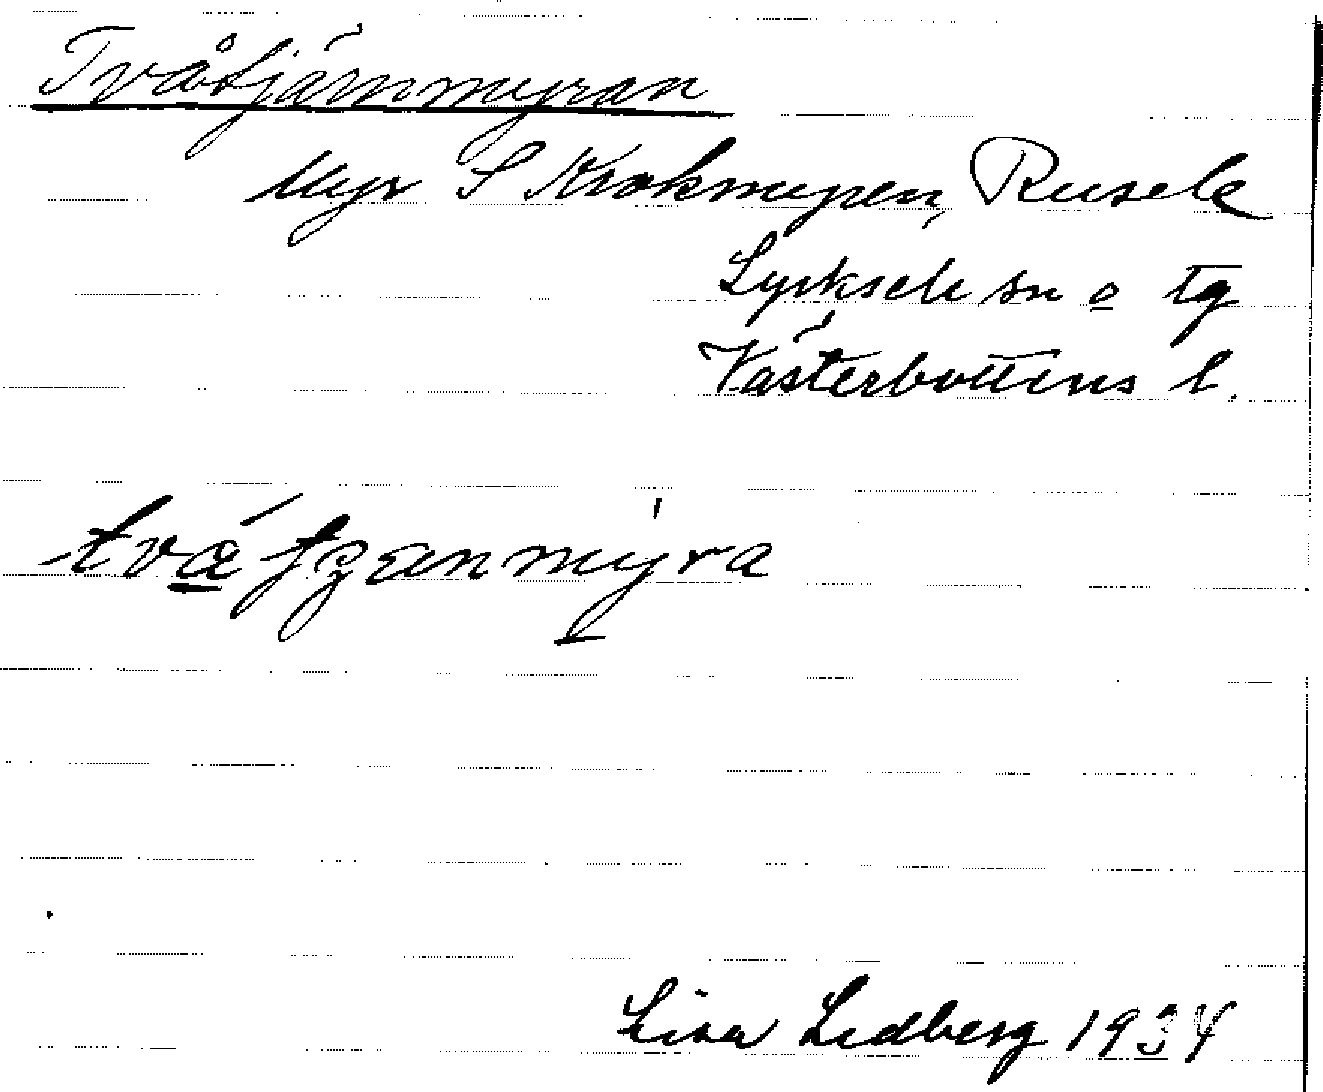 Tvåtjärnmyran
Myr S Krokmyren, Rusele
Lycksele sn o tg
Västerbottens l.
Lisa Lidberg 1934